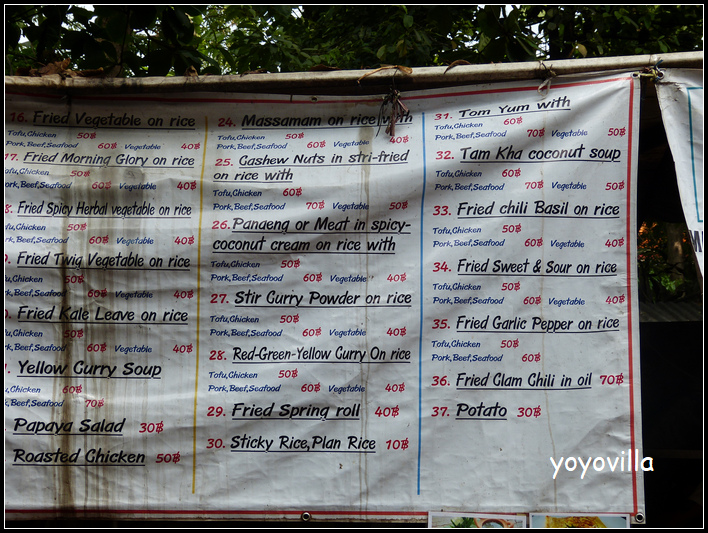 16. Fried Vegetable on rice
Tofu,Chicken 50฿
Pork,Beef,Seafood 60฿ Vegetable 40฿
17. Fried Morning Glory on rice
Tofu,Chicken 50฿
Pork,Beef,Seafood 60฿ Vegetable 40฿
8. Fried Spicy Herbal vegetable on rice
Tofu,Chicken 50฿
Pork,Beef,Seafood 60฿ Vegetable 40฿
Fried Twig Vegetable on rice
Tofu,Chicken 50฿
Pork,Beef,Seafood 60฿ Vegetable 40฿
Fried Kale Leave on rice
Tofu,Chicken 50฿
Pork,Beef,Seafood 60฿ Vegetable 40฿
Yellow Curry Soup
Tofu,Chicken 60฿
Pork,Beef,Seafood 70฿
Papaya Salad 30฿
Roasted Chicken 50฿
24. Massamam on rice with
Tofu,Chicken 50฿
Pork,Beef,Seafood 60฿ Vegetable 40฿
25. Cashew Nuts in stri-fried
on rice with
Tofu,Chicken 60฿
Pork,Beef,Seafood 70฿ Vegetable 50฿
26. Panaeng or Meat in spicy-
coconut cream on rice with
Tofu,Chicken 50฿
Pork,Beef,Seafood 60฿ Vegetable 40฿
27. Stir Curry Powder on rice
Tofu,Chicken 50฿
Pork,Beef,Seafood 60฿ Vegetable 40฿
28. Red-Green-Yellow Curry On rice
Tofu,Chicken 50฿
Pork,Beef,Seafood 60฿ Vegetable 40฿
29. Fried Spring roll 40฿
30. Sticky Rice,Plan Rice 10฿
31. Tom Yum with
Tofu,Chicken 60฿
Pork,Beef,Seafood 70฿ Vegetable 50฿
32. Tam Kha coconut soup
Tofu,Chicken 60฿
Pork,Beef,Seafood 70฿ Vegetable 50฿
33. Fried chili Basil on rice
Tofu,Chicken 50฿
Pork,Beef,Seafood 60฿ Vegetable 40฿
34. Fried Sweet & Sour on rice
Tofu,Chicken 50฿
Pork,Beef,Seafood 60฿ Vegetable 40฿
35. Fried Garlic Pepper on rice
Tofu,Chicken 50฿
Pork,Beef,Seafood 60฿
36. Fried Clam Chili in oil 70฿
37. Potato 30฿
yoyovilla